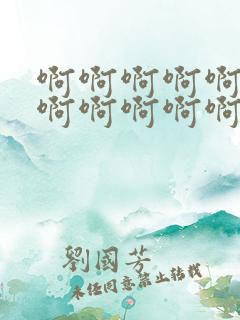 啊啊啊啊啊
啊啊啊啊啊
劉國芳
未经同意禁止转载